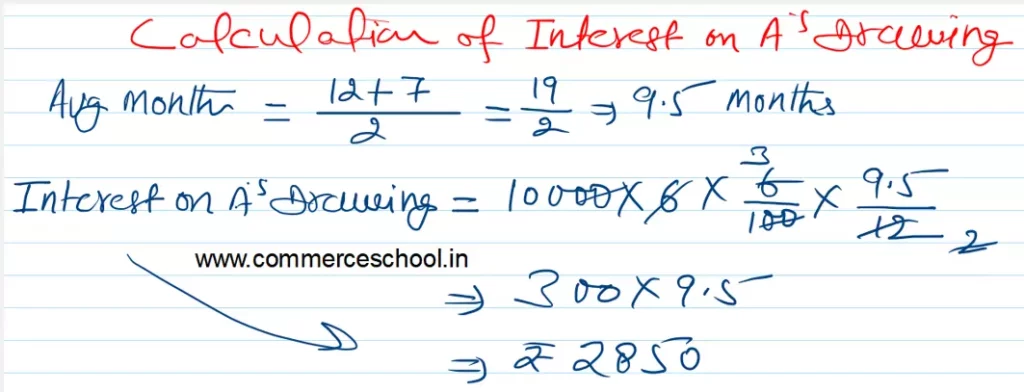 Calculation of Interest on A's Drawing
Avg Month = 12+7/2 = 19/2 ⇒ 9.5 Months
Interest on A's Drawing = 10000 × 6 × 6/100 × 9.5/12 3 2
www.commerceschool.in
⇒ 300 × 9.5
⇒ ₹ 2850